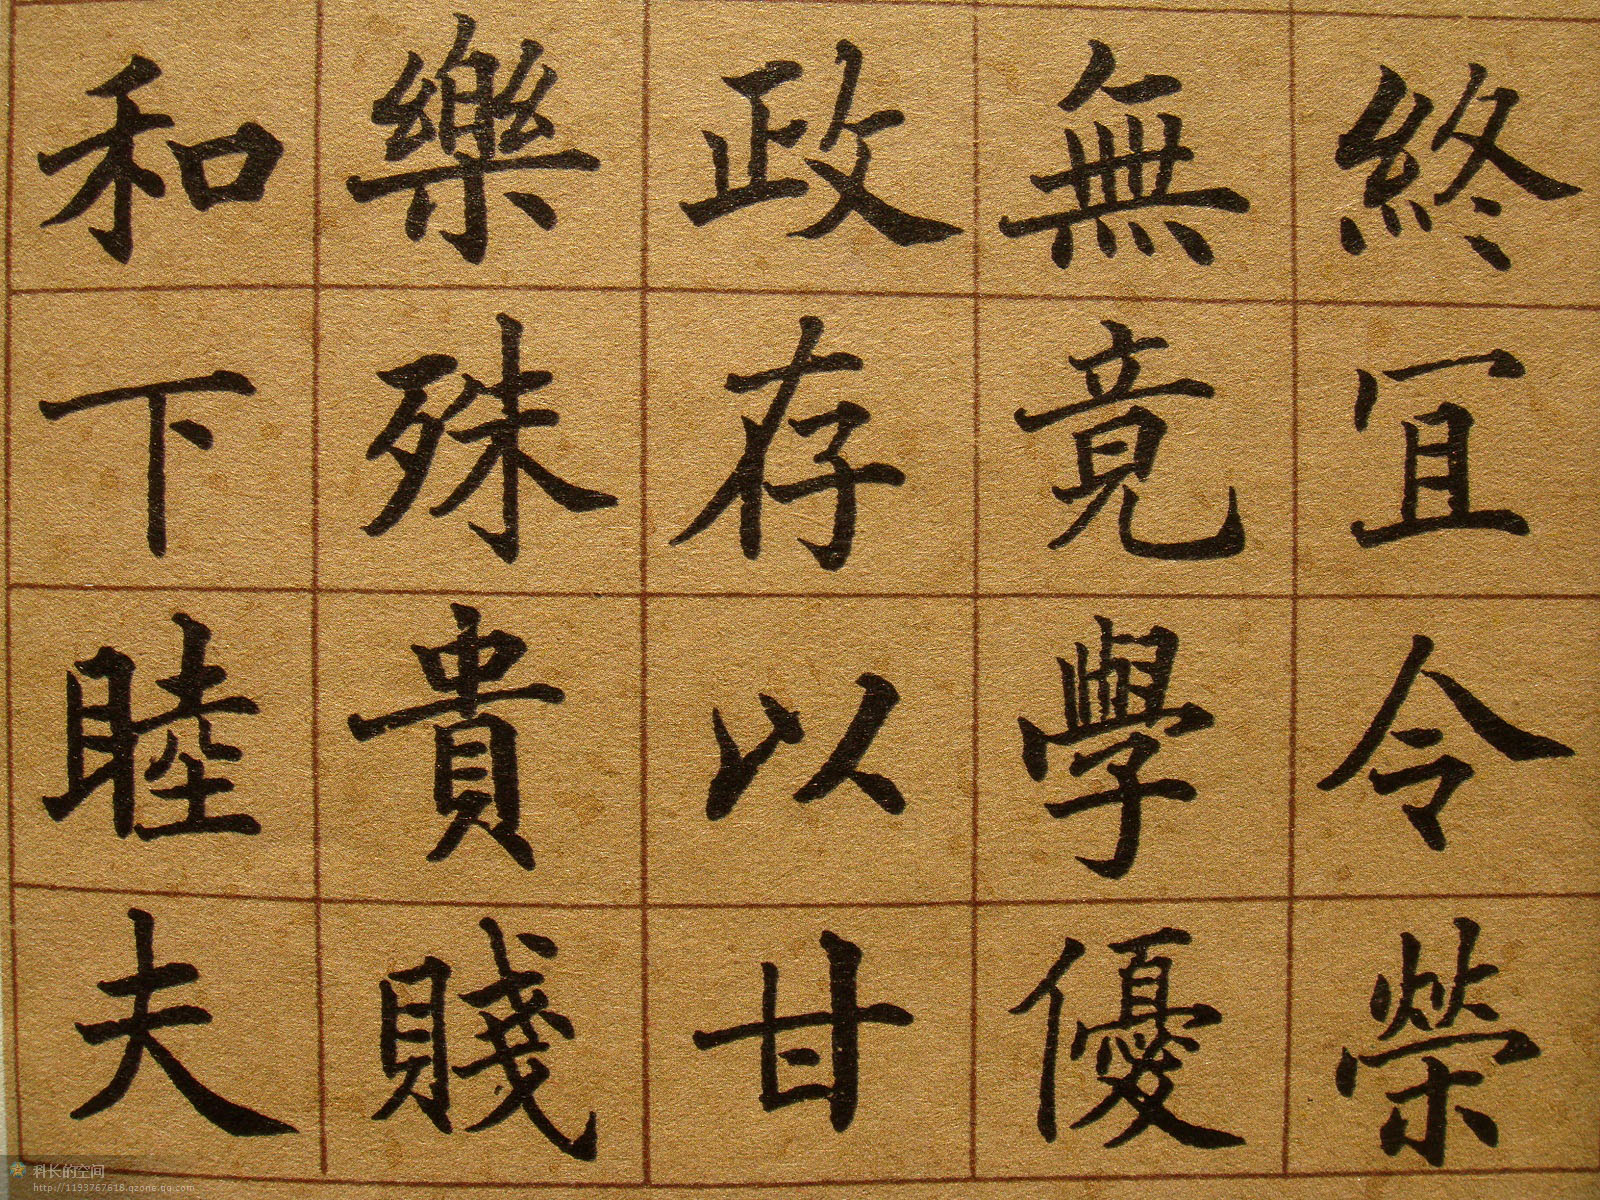 終冝令榮
無竟學優
政存以甘
樂殊貴賤
和下睦夫
科长的空间
http://1193767618.qzone.qq.com